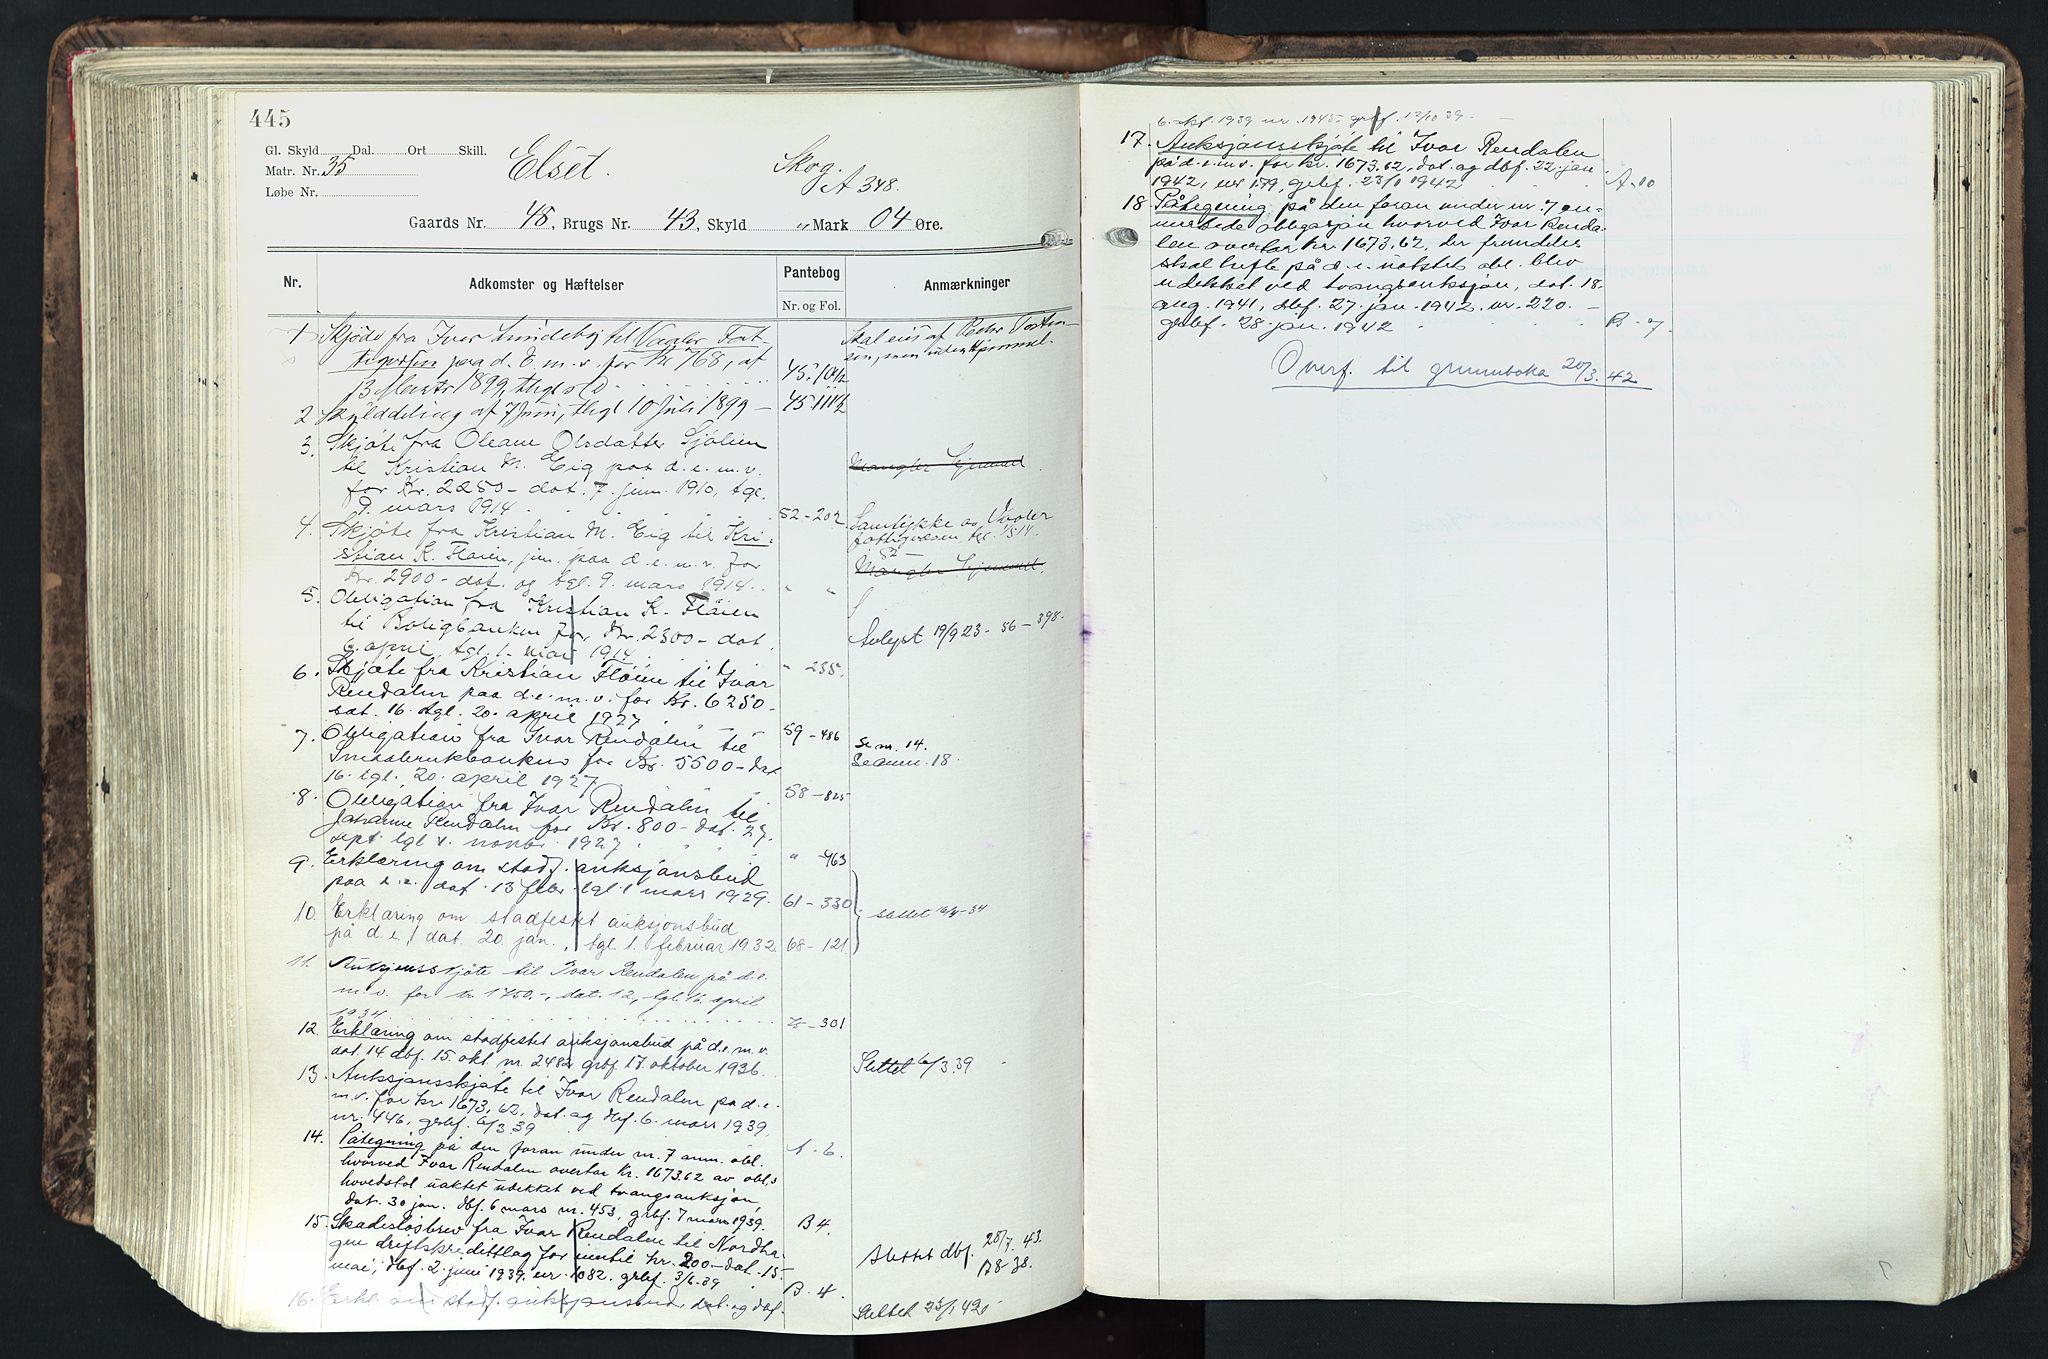 445
Gl. Skyld Dal. Ort Skill.
Matr. Nr. 35
Løbe Nr.
Elset.
Skog.
A 348.
Gaards Nr. 48, Brugs Nr. 43, Skyld „ Mark 04 Øre.
Nr. Adkomster og Hæftelser Pantebog Anmærkninger
Nr. og Fol.
1 Skjøde fra Iver til Vaaler Fat- Skal eies af Peder
tigvæsen paa d. E. m. v. for Kr 768, af men uden Hjemmel.
13 Marts 1899, thgl s D 45. 10 1/2
2 Skylddeling af 7 Juni, thgl 10 Juli 1899 – 45 111 1/2
3. Skjøte fra Oleane Olsdatter Sjølien
til Kristian M. Eig paa d. e. m. v. Mangler Hjemmel.
for Kr. 2250 – dat. 7. juni 1910, tgl.
9. mars 1914 52 – 202
4. Skjøte fra Kristian M. Eig til Kri- Samtykke av Vaaler
stian K. Fløien, jun. paa d. e. m. v. for fattigvæsen tgl. 1914.
Kr. 2900 – dat. og tgl. 9. mars 1914 „ „ Mangler Hjemmel.
5. Obligation fra Kristian K. Fløien
til Boligbanken for Kr. 2300 – dat. Avlyst 19/9 23 – 56 – 398.
6. april, tgl. 1. mai 1914 „ 255.
6. Skjøte fra Kristian Fløien til Ivar
Rendalen paa d. e. m. v. for Kr. 6250 –
dat. 16. tgl. 20. april 1927 59 – 486
7. Obligation fra Ivar Rendalen til Se nr. 14.
Småbrukbanken for Kr. 5500 – dat. Se anm. 18.
16. tgl. 20. april 1927 58 – 825
8. Obligation fra Ivar Rendalen til
Johanne Rendalen for Kr. 800 – dat. 27.
sept. tgl 1. novbr. 1927 „ – 463
9. Erklæring om stadf. auksjonsbud
paa d. e. dat. 13 febr. tgl. 1 mars 1929. 61 – 330
10. Erklæring om stadfestet auksjonsbud slettet 16/4 – 34
på d. e., dat. 20. jan., tgl. 1. februar 1932. 68 – 121
11. Auksjonsskjøte til Ivar Rendalen på d. e.
m. v. for kr. 1750.-, dat. 12, tgl. 16. april
1934 – 301
12. Erklæring om stadfestet auksjonsbud på d. e. m. v.
dat. 14 dbf. 15. okt. nr. 2482 grbf. 17. oktober 1936. Slettet 6/3.39
13. Auksjonsskjøte til Ivar Rendalen på d. e.
m. v. for kr. 1673,62, dat. og dbf. 6. mars 1939,
nr. 446, grbf. 6/3.39 A. 6.
14. Påtegning på den foran under nr. 7 anm. obl.
hvorved Ivar Rendalen overtar kr. 1673.62 av obl.s
hovedstol uaktet udekket ved tvangsauksjon,
dat. 30 jan. dbf. 6 mars nr. 453, grbf. 7 mars 1939. B 4.
15. Skadesløsbrev fra Ivar Rendalen til Nordha-
gen driftskredittlag for inntil kr. 200 – dat. 15. Slettet dbf. 28/7. 43.
mai, dbf. 2. juni 1939. nr. 1082. grbf. 3/6.39 B. 4. B8-38.
16. Erkl. om stadf. auksjonsbud dat. og dbf. Slettet 23/1 42
6. okt. 1939 nr. 1945 – grbf. 12/10 39 –
17. Auksjonsskjøte til Ivar Rendalen
på d. e. m. v. for kr. 1673.62, dat. og dbf. 22. jan.
1942, nr 179, grbf. 23/1 1942 A. 10
18. Påtegning på den foran under nr. 7 an-
merkede obligasjon hvorved Ivar Renda-
len overtar kr. 1673.62, der fremdeles
skal hefte på d. e. uaktet obl. blev
udekket ved tvangsauksjon, dat. 18.
aug. 1941, dbf. 27. jan. 1942. nr. 220. –
grbf. 28. jan. 1942 B. 7.
Overf. til grunnboka 20/3. 42